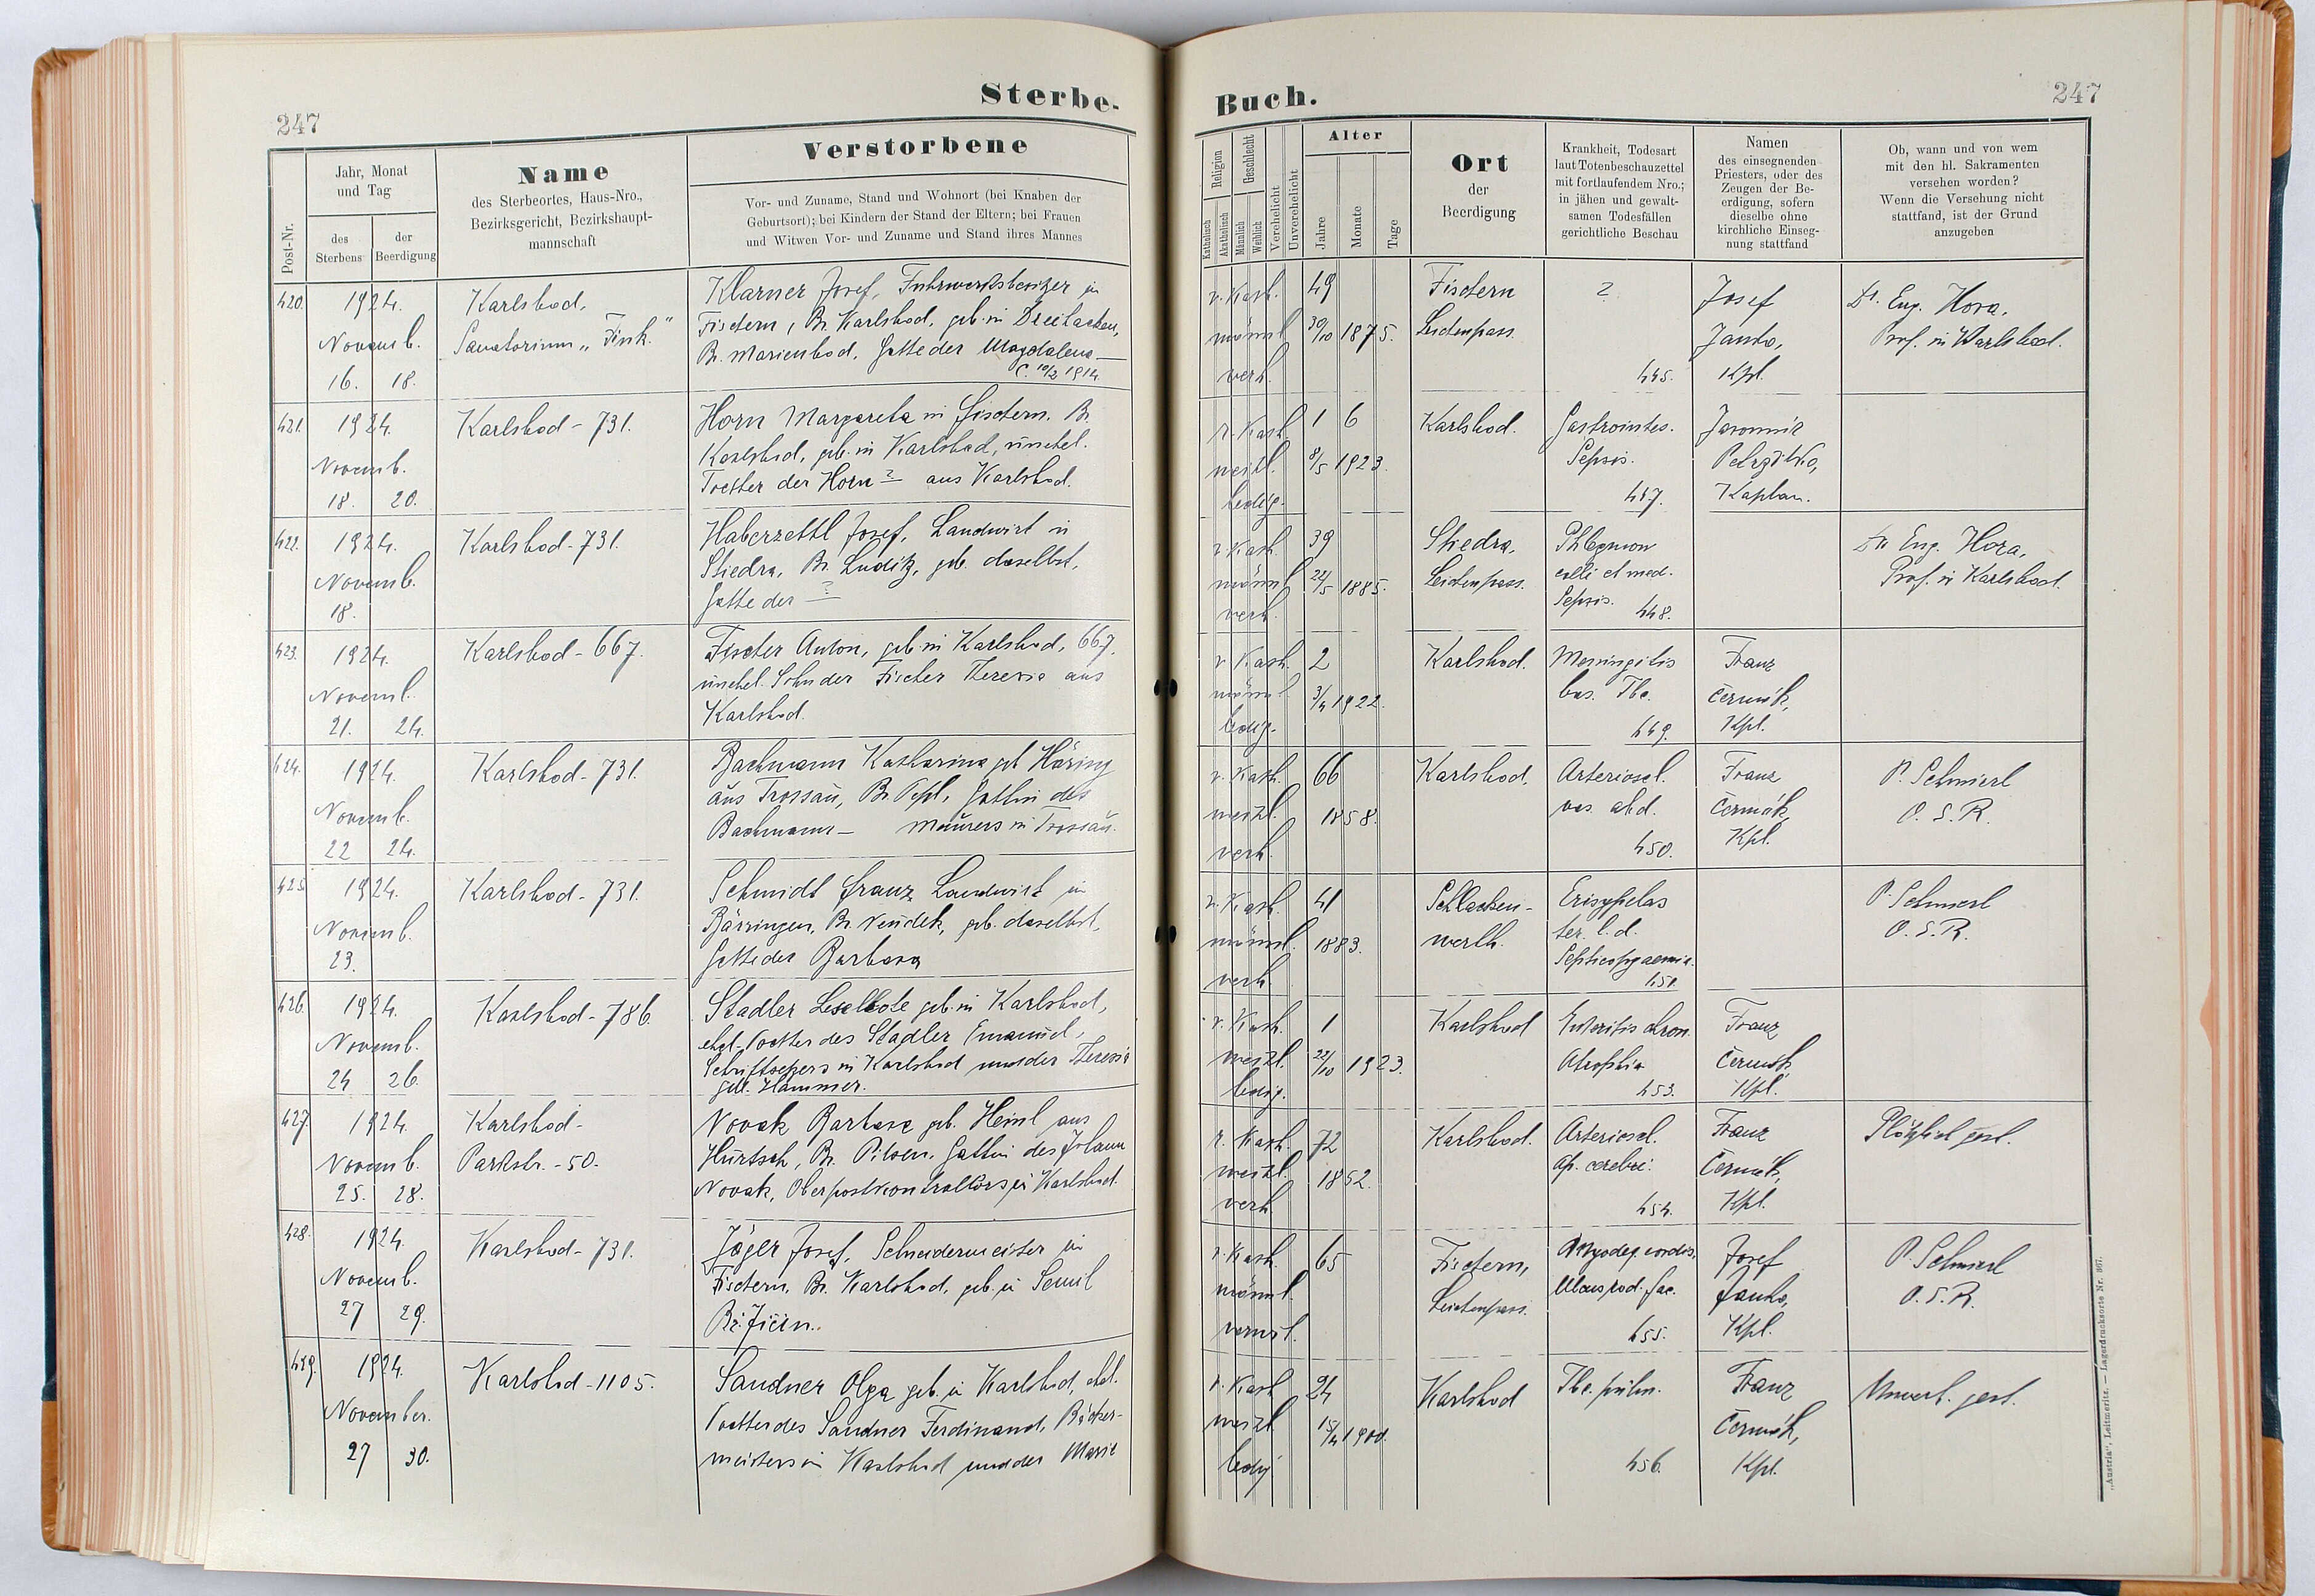 Sterbe-
247
Post-Nr.
Jahr, Monat
und Tag
des
Sterbens
der
Beerdigung
Name
des Sterbeortes, Haus-Nro.,
Bezirksgericht, Bezirkshaupt-
mannschaft
Verstorbene
Vor- und Zuname, Stand und Wohnort (bei Knaben der
Geburtsort); bei Kindern der Stand der Eltern; bei Frauen
und Witwen Vor- und Zuname und Stand ihres Mannes
420.
1924.
Novemb.
16. 18.
Karlsbad,
Sanatorium „Fink“
Klarner Josef, Fuhrwerksbesitzer in
Fischern, Bz. Karlsbad, geb. in Dreihacken,
Bz. Marienbad, Gatte der Magdalena —
C. 10/2 1914.
421.
1924.
Novemb.
18. 20.
Karlsbad - 731.
Horn Margareta in Fischern, Bz.
Karlsbad, geb. in Karlsbad, unehel.
Tochter der Horn ? aus Karlsbad.
422.
1924.
Novemb.
18.
Karlsbad - 731.
Haberzettl Josef, Landwirt in
Stiedra, Bz. Luditz, geb. daselbst,
Gatte der ?
423.
1924.
Novemb.
21. 24.
Karlsbad - 667.
Fischer Anton, geb. in Karlsbad, 667,
unehel. Sohn der Fischer Theresie aus
Karlsbad.
424.
1924.
Novemb.
22 24.
Karlsbad - 731.
Bachmann Katharina geb. Häring
aus Trossau, Bz. Tepl, Gattin des
Bachmann — Maurers in Trossau.
425.
1924.
Novemb.
23.
Karlsbad - 731.
Schmidt Franz, Landwirt in
Bärringen, Bz. Neudek, geb. daselbst,
Gatte der Barbara
426.
1924.
Novemb.
24 26.
Karlsbad - 786.
Stadler Leselbote geb. in Karlsbad,
ehel. Tochter des Stadler Emanuel,
Schriftsetzers in Karlsbad und der Theresie
geb. Hammer.
427.
1924.
Novemb.
25. 28.
Karlsbad -
Parkstr. - 50.
Novak Barbara geb. Heinl aus
Hurtsch, Bz. Pilsen, Gattin des Johann
Novak, Oberpostkontrollors in Karlsbad.
428.
1924.
Novemb.
27 29.
Karlsbad - 731.
Jäger Josef, Schneidermeister in
Fischern, Bz. Karlsbad, geb. in Semil
Bz. Jičin.
429.
1924.
November.
27 30.
Karlsbad - 1105.
Sandner Olga geb. in Karlsbad, ehel.
Tochter des Sandner Ferdinand, Bäcker-
meisters in Karlsbad und der Marie
Buch.
247
Religion
Katholisch
Akatholisch
Geschlecht
Männlich
Weiblich
Verehelicht
Unverehelicht
Alter
Jahre
Monate
Tage
Ort
der
Beerdigung
Krankheit, Todesart
laut Totenbeschauzettel
mit fortlaufendem Nro.;
in jähen und gewalt-
samen Todesfällen
gerichtliche Beschau
Namen
des einsegnenden
Priesters, oder des
Zeugen der Be-
erdigung, sofern
dieselbe ohne
kirchliche Einseg-
nung stattfand
Ob, wann und von wem
mit den hl. Sakramenten
versehen worden?
Wenn die Versehung nicht
stattfand, ist der Grund
anzugeben
r. Kath.
männl.
verh.
49
30/10 1875.
Fischern
Leichenpass.
?
445.
Josef
Janko,
Kpl.
Dr. Eug. Hora,
Prof. in Karlsbad.
r. Kath.
weibl.
ledig.
1 6
8/5 1923.
Karlsbad.
Gastrointes.
Sepsis.
447.
Jaromír
Kaplan.
r. Kath.
männl.
verh.
39
22/5 1885.
Stiedra,
Leichenpass.
Phlegmon
colli et med.
Sepsis.
448.
Dr. Eug. Hora,
Prof. in Karlsbad.
r. Kath.
männl.
ledig.
2
3/4 1922.
Karlsbad.
Meningitis
bas. Tbc.
449.
Franz
Čermák,
Kpl.
r. Kath.
weibl.
verh.
66
1858.
Karlsbad.
Arterioscl.
vas. abd.
450.
Franz
Čermák,
Kpl.
P. Schmierl
O. S. R.
r. Kath.
männl.
verh.
41
1883.
Schlacken-
werth.
Erisypelas
ter. l. d.
Septicopyaemia.
451.
P. Schmierl
O. S. R.
r. Kath.
weibl.
ledig.
1
22/10 1923.
Karlsbad
Enteritis chron.
Atrophia
453.
Franz
Čermák,
Kpl.
r. Kath.
weibl.
verh.
72
1852.
Karlsbad.
Arterioscl.
Ap. cerebri.
454.
Franz
Čermák,
Kpl.
Plötzlich gest.
r. Kath.
männl.
verwit.
65
Fischern,
Leichenpass.
Myodeg. cordis,
455.
Josef
Janko,
Kpl.
P. Schmierl
O. S. R.
r. Kath.
weibl.
ledig
24
15/4 1900.
Karlsbad
Tbc. pulm.
456.
Franz
Čermák,
Kpl.
Unverh. gest.
„Austria“, Leitmeritz. — Lagerdrucksorte Nr. 667.